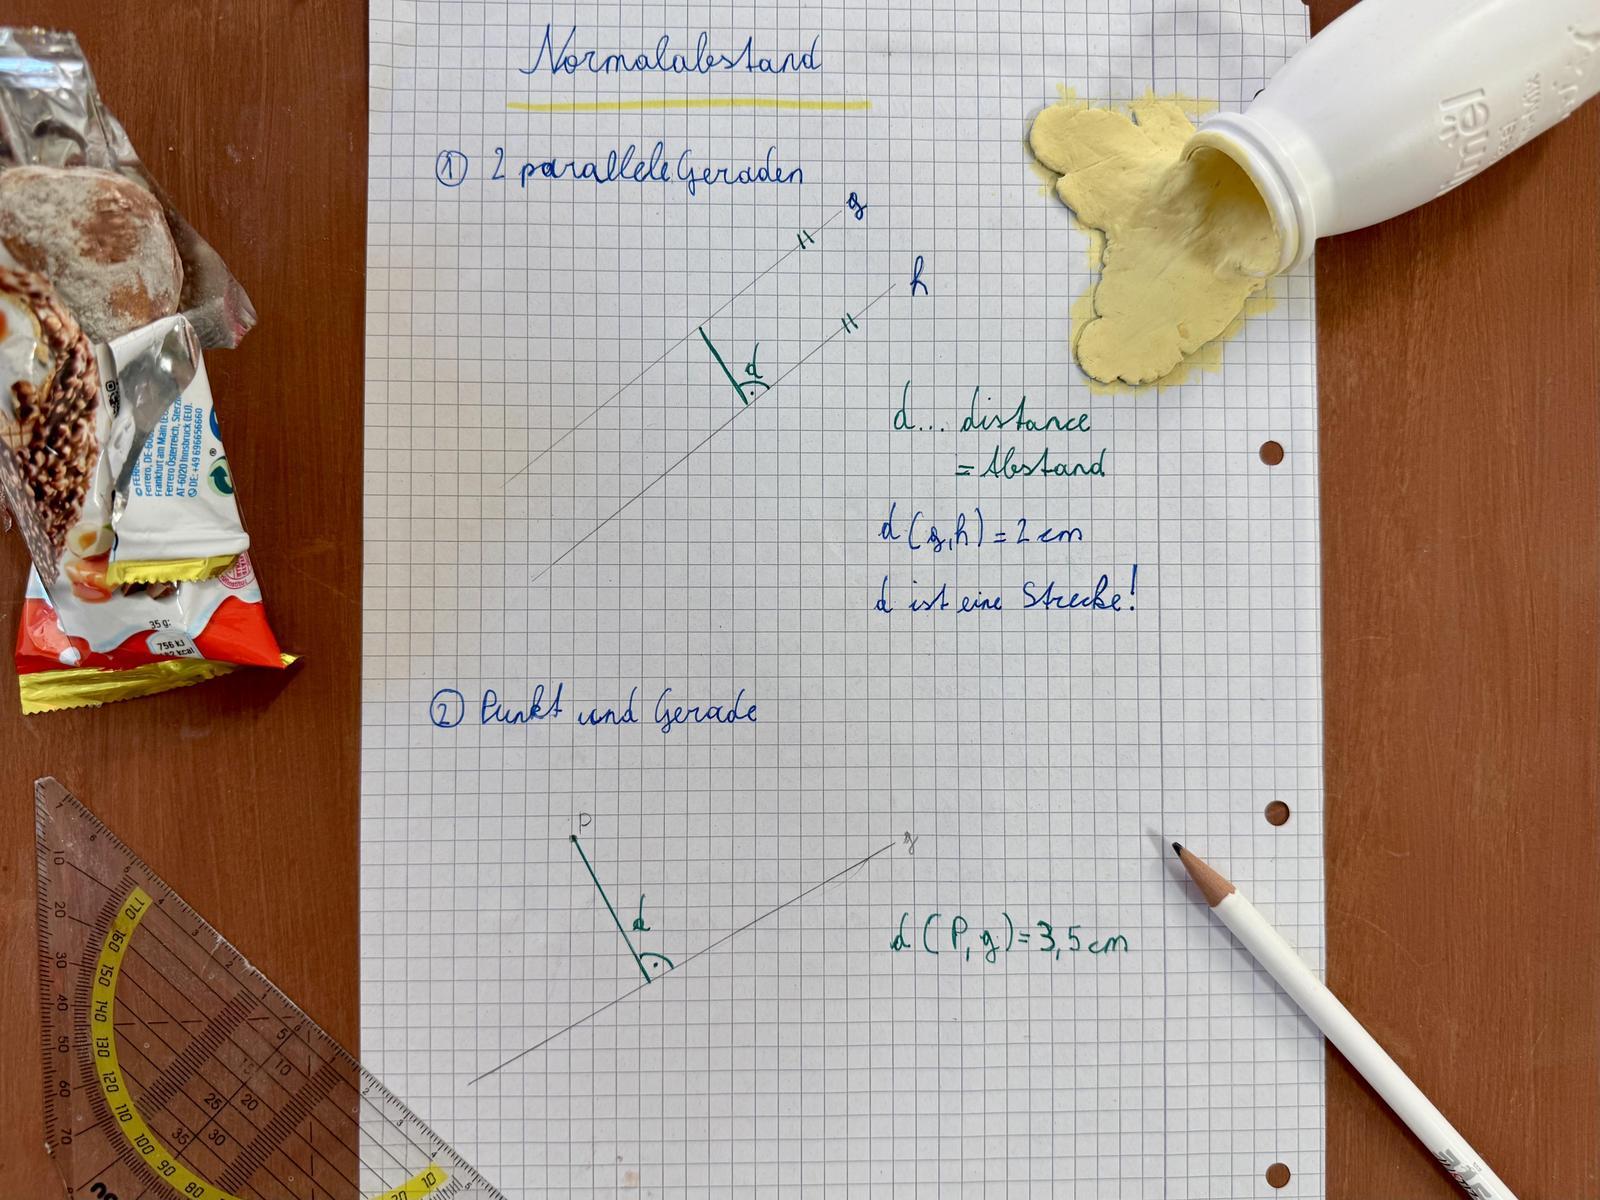 Normalabstand
① 2 parallele Geraden
g
h
d
d... distance
= Abstand
d (g,h) = 2 cm
d ist eine Strecke!
② Punkt und Gerade
P
g
d
d (P, g) = 3,5 cm
Ferrero, DE-60
Frankfurt am Main (E
Ferrero Österreich, Sterzi
AT-6020 Innsbruck (EU).
DE: +49 6966566660
35 g:
756 kJ
kcal
7
6
5
4
3
2
1
0
1
2
3
4
5
10
20
30
40
50
60
70
170
160
150
140
130
120
110
100
90
80
10
5
10
15
20
25
30
35